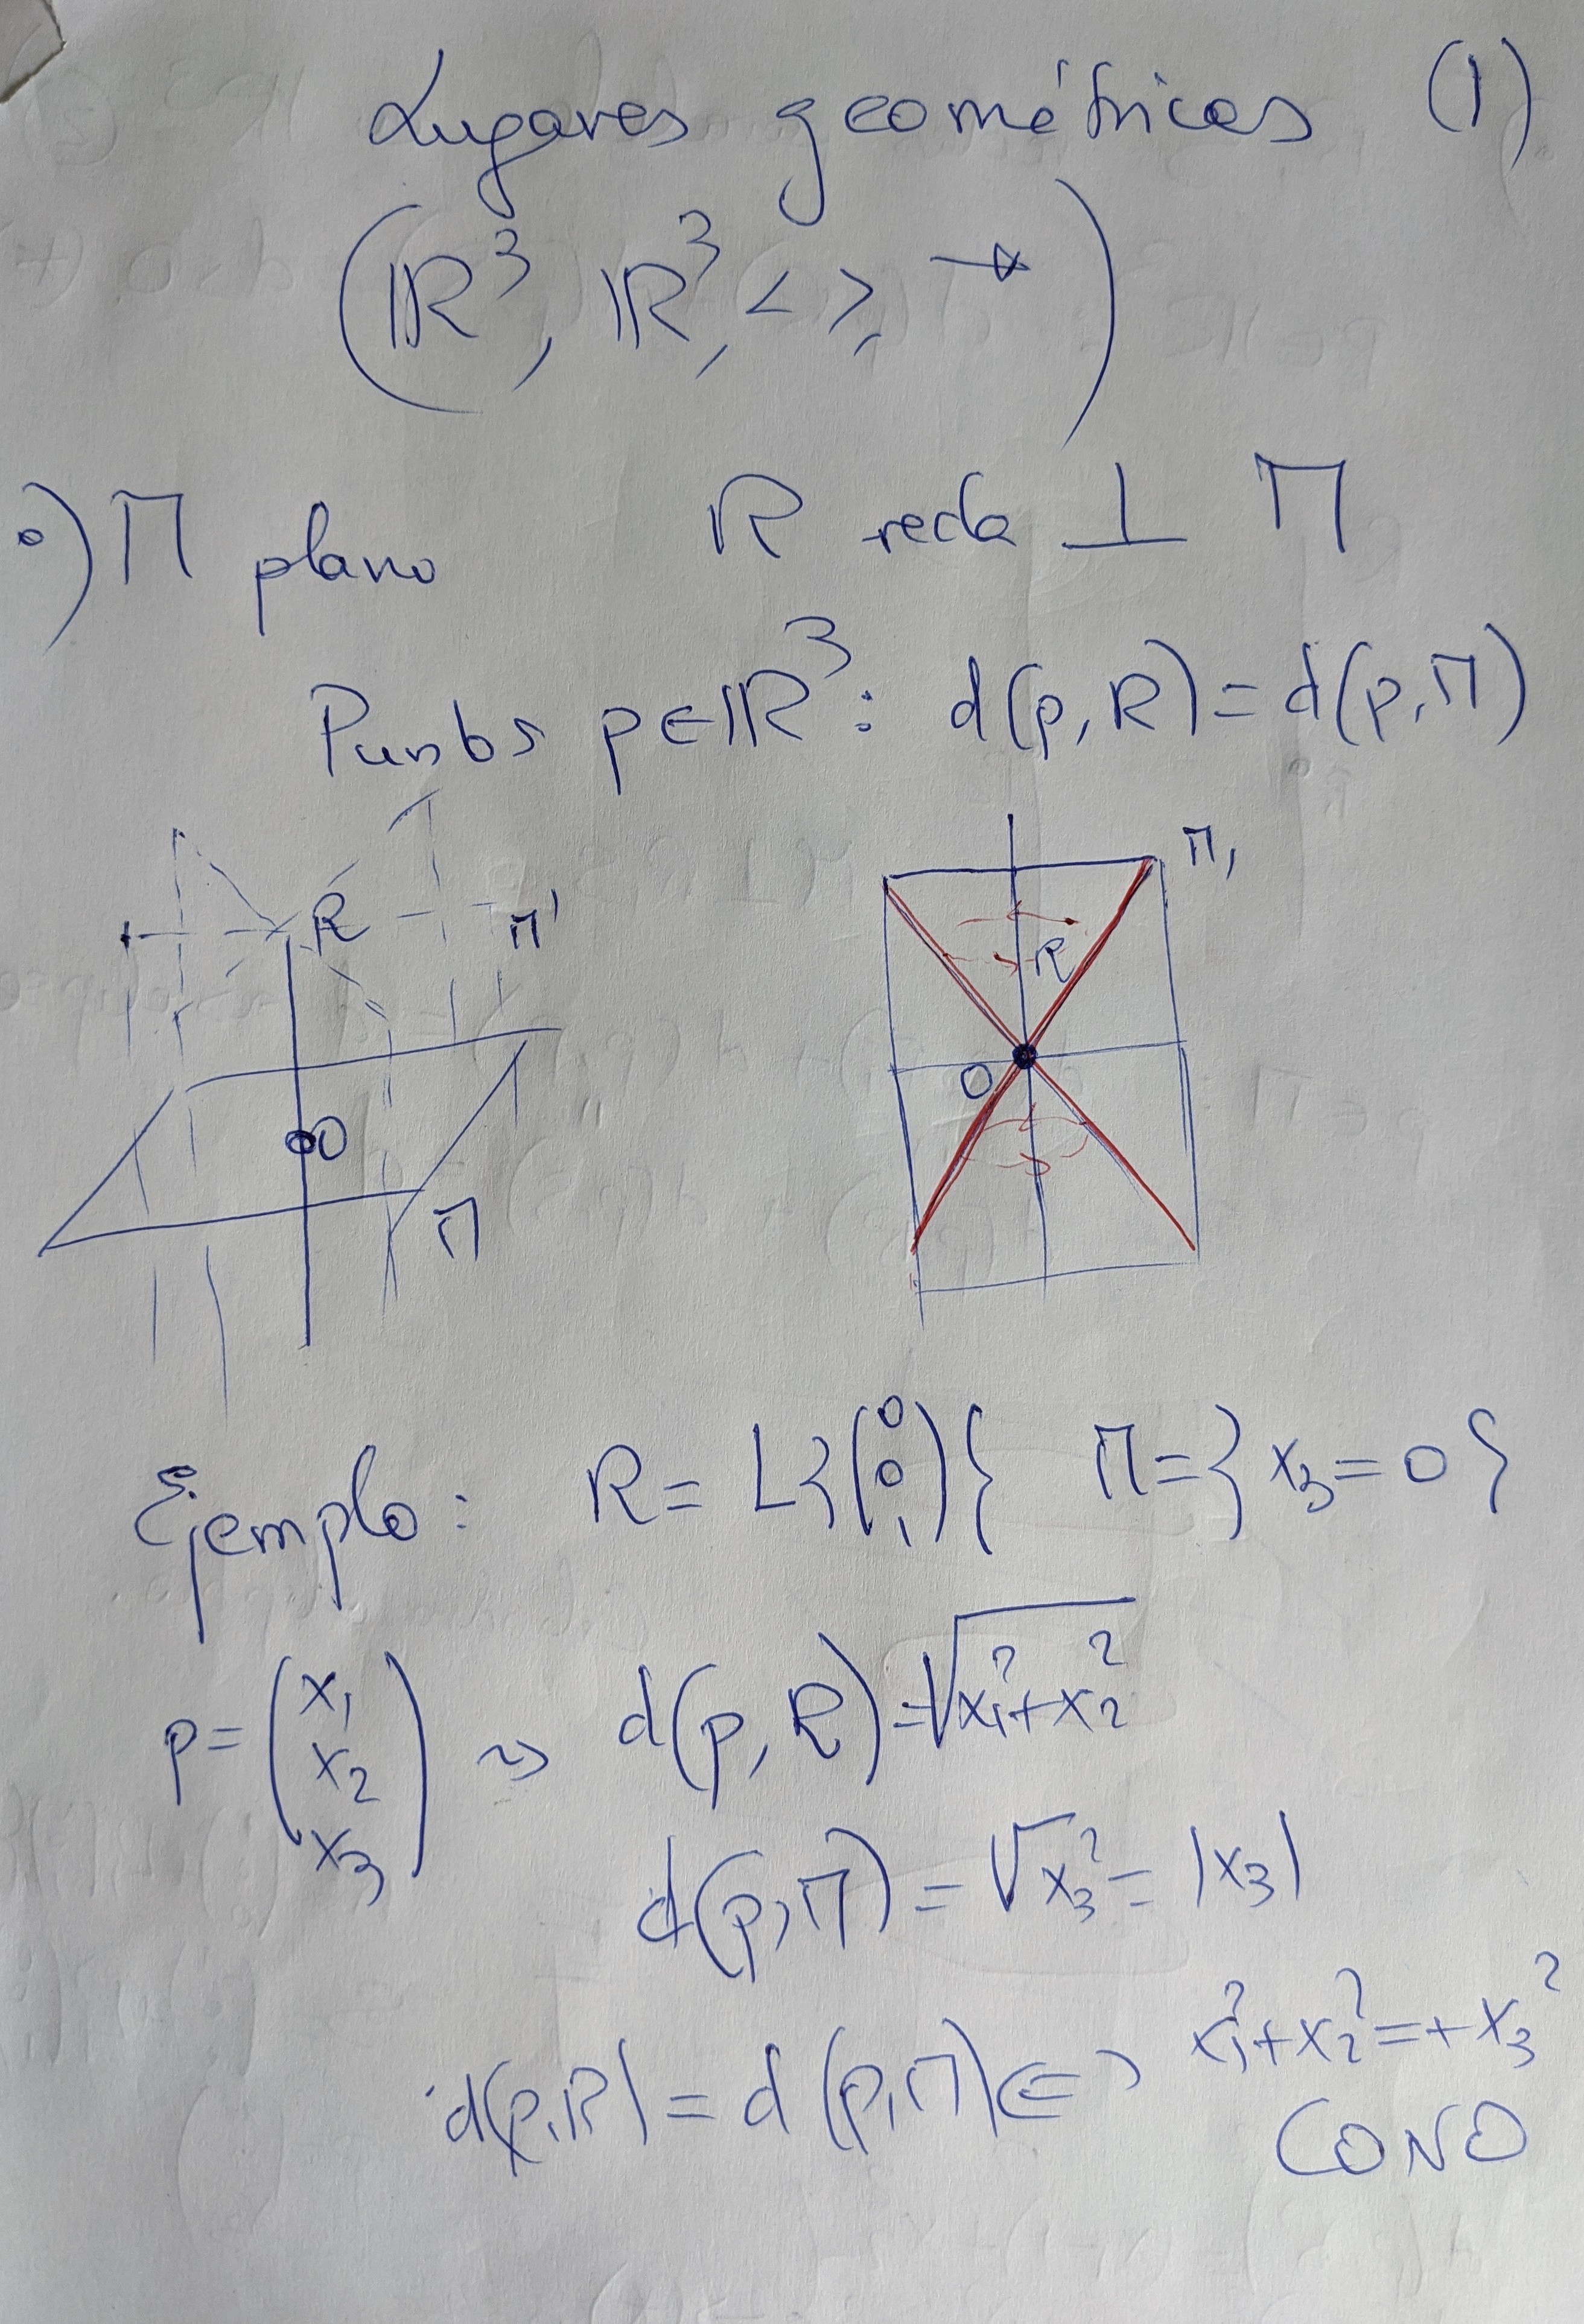 Lugares geométricos (1)
(ℝ³, ℝ³, < >, →)
•) Π plano R recta ⊥ Π
Puntos p∈ℝ³: d(p, R) = d(p, Π)
R Π' Π₁
R
O O
Π
Ejemplo: R = L{(0 0 1)} Π = {x₃ = 0}
p = (x₁ x₂ x₃) ⇝ d(p, R) = √(x₁² + x₂²)
d(p, Π) = √x₃² = |x₃|
d(p, R) = d(p, Π) ⇔ x₁² + x₂² = + x₃²
CONO